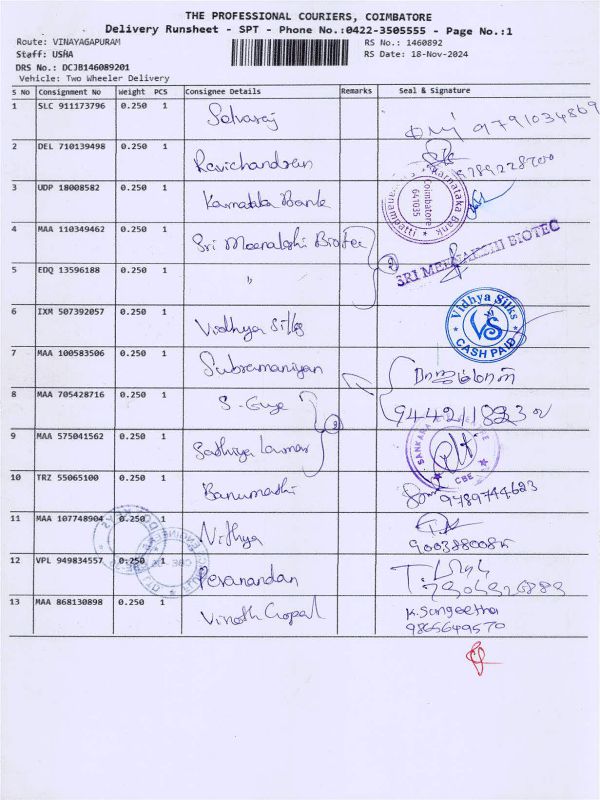 THE PROFESSIONAL COURIERS, COIMBATORE
Delivery Runsheet - SPT - Phone No.:0422-3505555 - Page No.:1
Route: VINAYAGAPURAM
Staff: USHA
DRS No.: DCJB146089201
Vehicle: Two Wheeler Delivery
RS No.: 1460892
RS Date: 18-Nov-2024
S No Consignment No Weight PCS Consignee Details Remarks Seal & Signature
1 SLC 911173796 0.250 1 9791034869
2 DEL 710139498 0.250 1 Ravichandran
3 UDP 18008582 0.250 1 Karnataka Bank Karnataka Bank Coimbatore 641035
4 MAA 110349462 0.250 1 Sri Meenakshi Biotec 2 SRI MEENAKSHI BIOTEC
5 EDQ 13596188 0.250 1 "
6 IXM 507392057 0.250 1 Vidhya Silks Vidhya Silks VS CASH PAID
7 MAA 100583506 0.250 1 Subramaniyan
8 MAA 705428716 0.250 1
9 MAA 575041562 0.250 1 Sathiya CBE
10 TRZ 55065100 0.250 1 Banumathi 9789744623
11 MAA 107748904 0.250 1 Nithya
12 VPL 949834557 0.250 1
13 MAA 868130898 0.250 1 Vinoth Gopal K. Sangeetha
9865649570